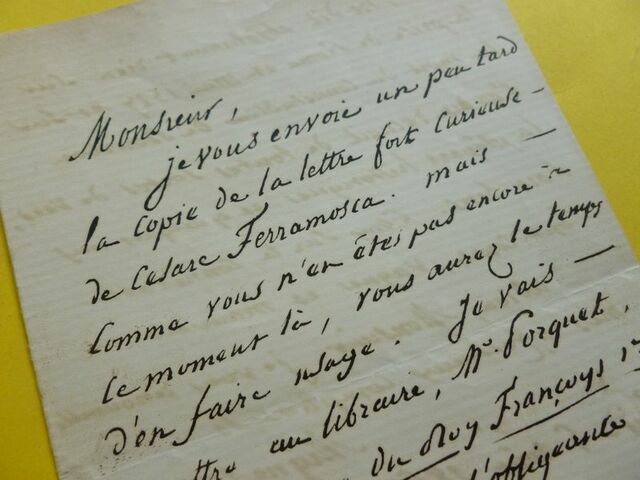 Monsieur,
je vous envoie un peu tard
la copie de la lettre fort curieuse –
de Cesare Ferramosca. mais –
comme vous n'en êtes pas encore à
ce moment là, vous aurez le temps
d'en faire usage. Je vais –
ttre au libraire, Mr. Porquet,
du Roy Françoys 1er
l'obligeante